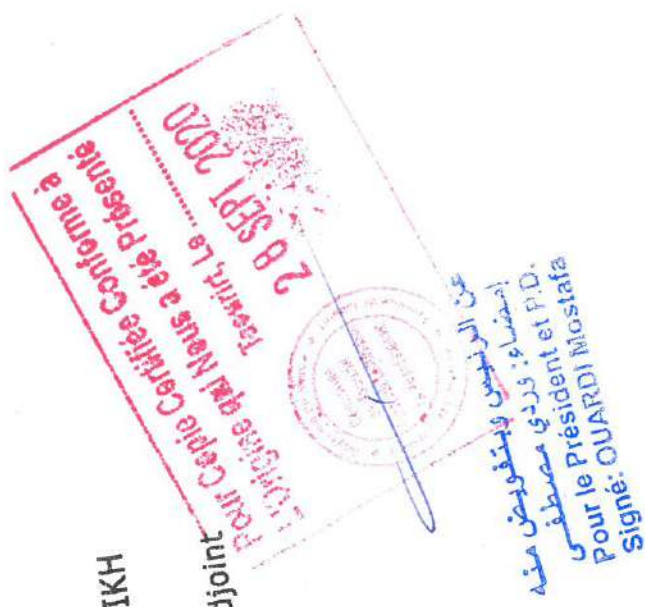 IKH
djoint
Pour Copie Certifiée Conforme à
L'Origine qui Nous a été Présenté
Taourirt, Le ..............
28 SEPT 2020
عن الرئيس وبتفويض منه
إمضاء: وردي مصطفى
Pour le Président et P.D.
Signé: OUARDI Mostafa